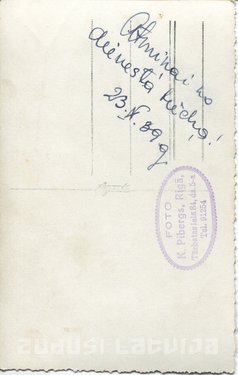 Atmiņai no
dienesta biedra!
23.IV.39g
FOTO
K. Pibergs, Rīgā,
Tel. 91254
ZUDUSI LATVIJA